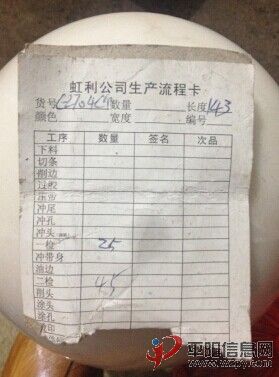 虹利公司生产流程卡
货号 数量 长度 143
颜色 宽度 编号
工序 数量 签名 次品
下料
切条
削边
过胶
冲尾
冲孔
冲头
一检 25
冲带身
油边
二检 45
削头
涂头
涂孔
平阳信息网